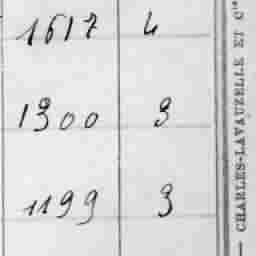 1617 4
1900 9
1199 3
— CHARLES-LAVAUZELLE ET Cie